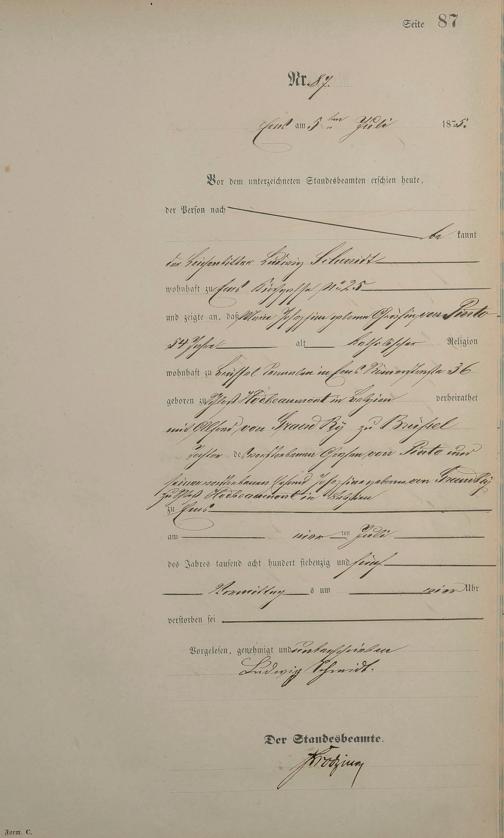 Seite 87
Nr. 87.
Ems am 5ten Juli 1875.
Vor dem unterzeichneten Standesbeamten erschien heute,
der Person nach
bekannt
der Ludwig Schmidt
wohnhaft zu Ems No 25
und zeigte an, daß Marie Josephine geborne Gräfin von Pinto
54 Jahre alt katholischer Religion
wohnhaft zu Brüssel in Ems 36
geboren zu Schloß in Belgien verheirathet
mit Alfred von Grand Ry zu Brüssel
Tochter des verstorbenen Grafen von Pinto und
seiner verstorbenen Josephine geborene von Grand Ry
zu Schloß in Belgien
zu Ems
am vierten Juli
des Jahres tausend acht hundert siebenzig und fünf
Vormittags um vier Uhr
verstorben sei
Vorgelesen, genehmigt und unterschrieben
Ludwig Schmidt.
Der Standesbeamte.
Form. C.